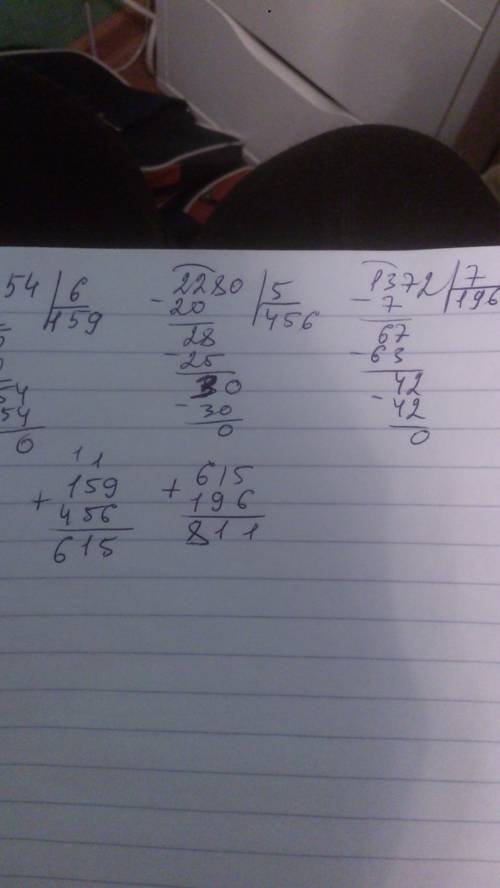 54 6
159
5
0
54
54
0
- 2280 5
20 456
28
- 25
30
- 30
0
- 1372 7
7 196
67
- 63
42
- 42
0
11
+ 159
456
615
+ 615
196
811